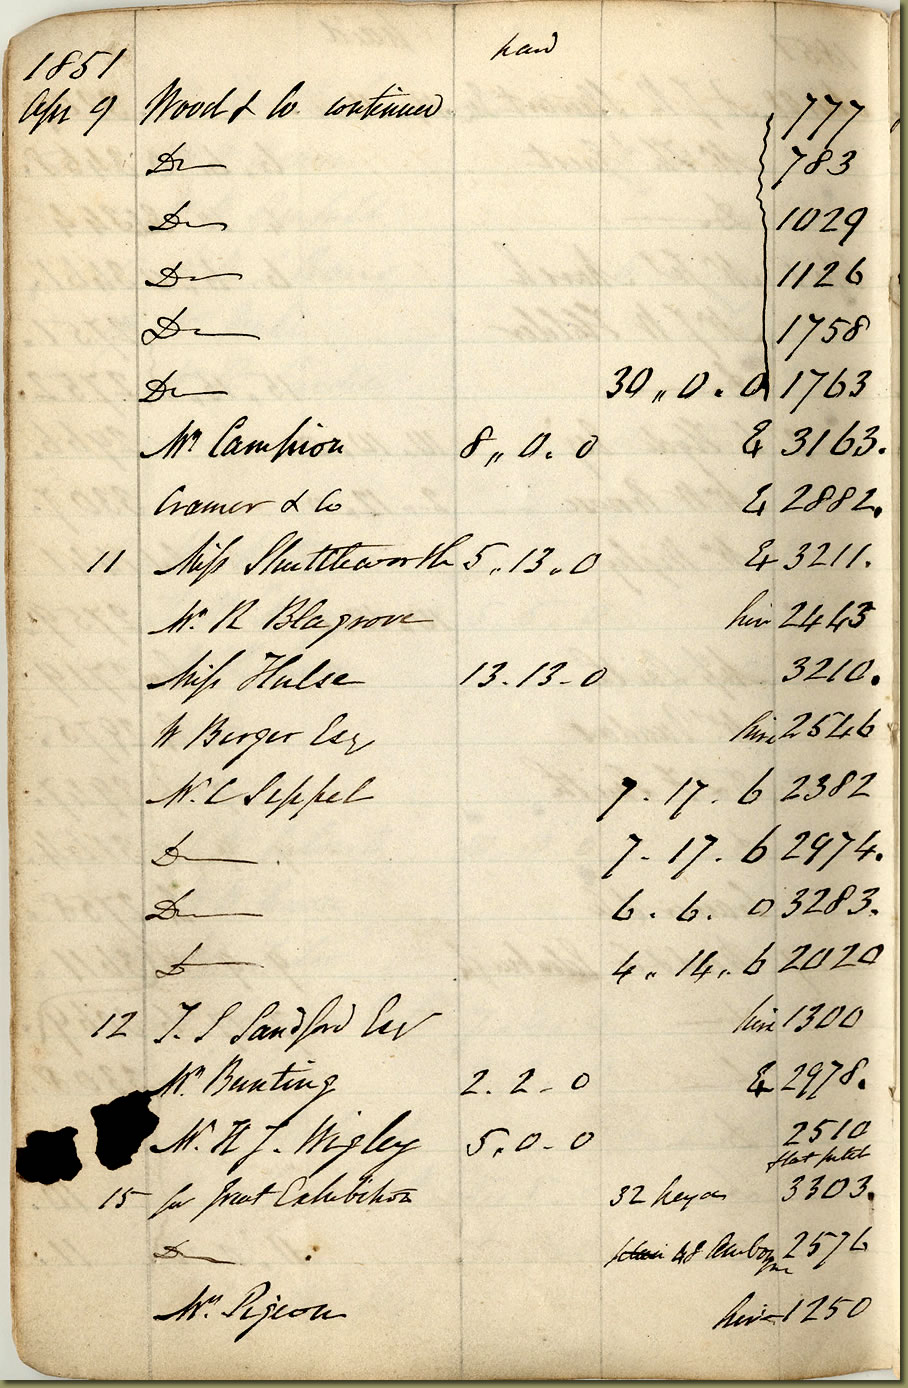 1851 paid
Apr 9 Wood & Co continued 777
Do 783
Do 1029
Do 1126
Do 1758
Do 30 ,, 0 . 0 1763
Mr Campion 8 ,, 0 . 0 & 3163.
Cramer & Co & 2882.
11 Miss Shuttleworth 5 ,, 13 ,, 0 & 3211.
Mr R Blagrove hire 2443
Miss Hulse 13 - 13 - 0 3210.
W Berger Esq hire 2546
Mr C Seppel 7 - 17 . 6 2382
Do 7 - 17 . 6 2974.
Do 6 . 6 . 0 3283.
Do 4 ,, 14 ,, 6 2020
12 T. S Sandford Esq hire 1300
Mr Bunting 2 . 2 - 0 & 2978.
Mr H J. Wigley 5 . 0 - 0 2510
flat pitch
15 for Great Exhibition 32 keyd 3303.
Do 48 Amboyna 2576
Mrs Pigeon hire 1250